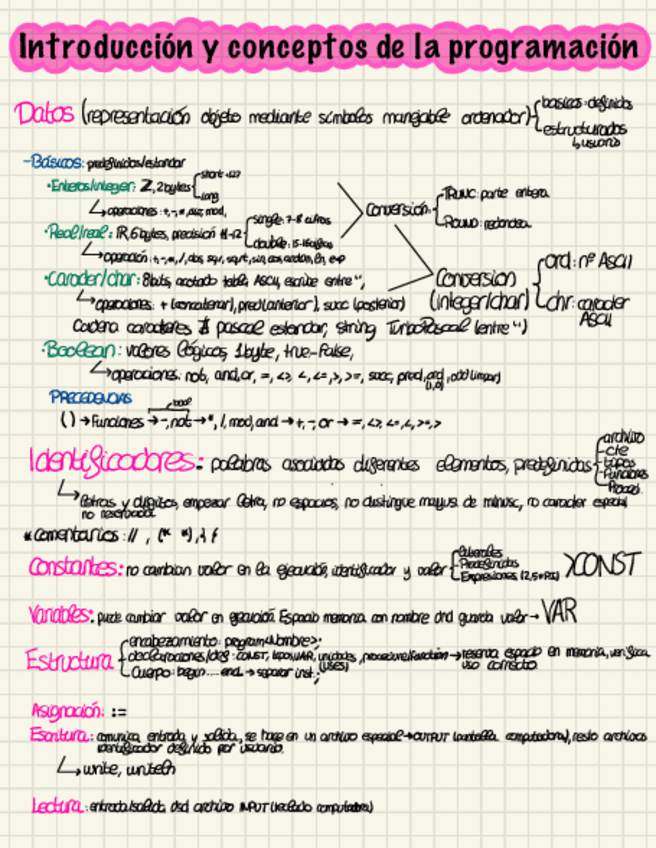 Introducción y conceptos de la programación
Datos (representación objeto mediante símbolos manejable ordenador) basicos: definidos
estructurados
↳ usuario
-Básicos: predefinidos/estandar
·Enteros/integer: Z, 2bytes short
long
↳ operaciones: +,-,*, mod,
·Real/real: IR, 6 bytes, precisión 11-12 single: 7-8 cifras
double: 15-16 cifras
↳ operación: +,-,*,/, abs, sqr, sqrt, sin, cos, arctan, ln, exp
Conversión TRUNC: parte entera
ROUND: redondea
·Caracter/char: 8bits, acotado tabla ASCII, escribe entre '',
↳ operadores: + (concatenar), pred (anterior), succ (posterior)
Cadena caracteres ∄ pascal estandar, string TurboPascal (entre '')
Conversion
(integer/char) ord: nº ASCII
chr: caracter
ASCII
·Boolean: valores lógicos, 1byte, true-False,
↳ operaciones: not, and, or, =, <>, <, <=, >, >=, succ, pred, ord, odd (impar)
(1,0)
PRECEDENCIAS
() → Funciones → -, not → *, /, mod, and → +, -, or → =, <>, <=, <, >=, >
Identificadores: palabras asociadas diferentes elementos, predefinidos archivo
cte
tipos
funciones
Proced.
↳ letras y dígitos, empezar letra, no espacios, no distingue mayus. de minusc, no caracter especial
no reservadas
*comentarios: //, (* *), { }
Constantes: no cambian valor en la ejecución, identificador y valor Literales
Predefinidas
Expresiones (2,5*PI) >CONST
Variables: puede cambiar valor en ejecución. Espacio memoria con nombre dnd guarda valor → VAR
Estructura encabezamiento: program <Nombre>;
declaraciones/def: CONST, tipo, VAR, unidades, procedure/function → reserva espacio en memoria, verifica
(USES) uso correcto
Cuerpo: begin.... end. → separar inst. ;
Asignación: :=
Escritura: comunica entrada y salida, se hace en un archivo especial → OUTPUT (pantalla computadora), resto archivos
identificador definido por usuario.
↳ write, writeln
Lectura: entrada/salida dsd archivo INPUT (teclado computadora)